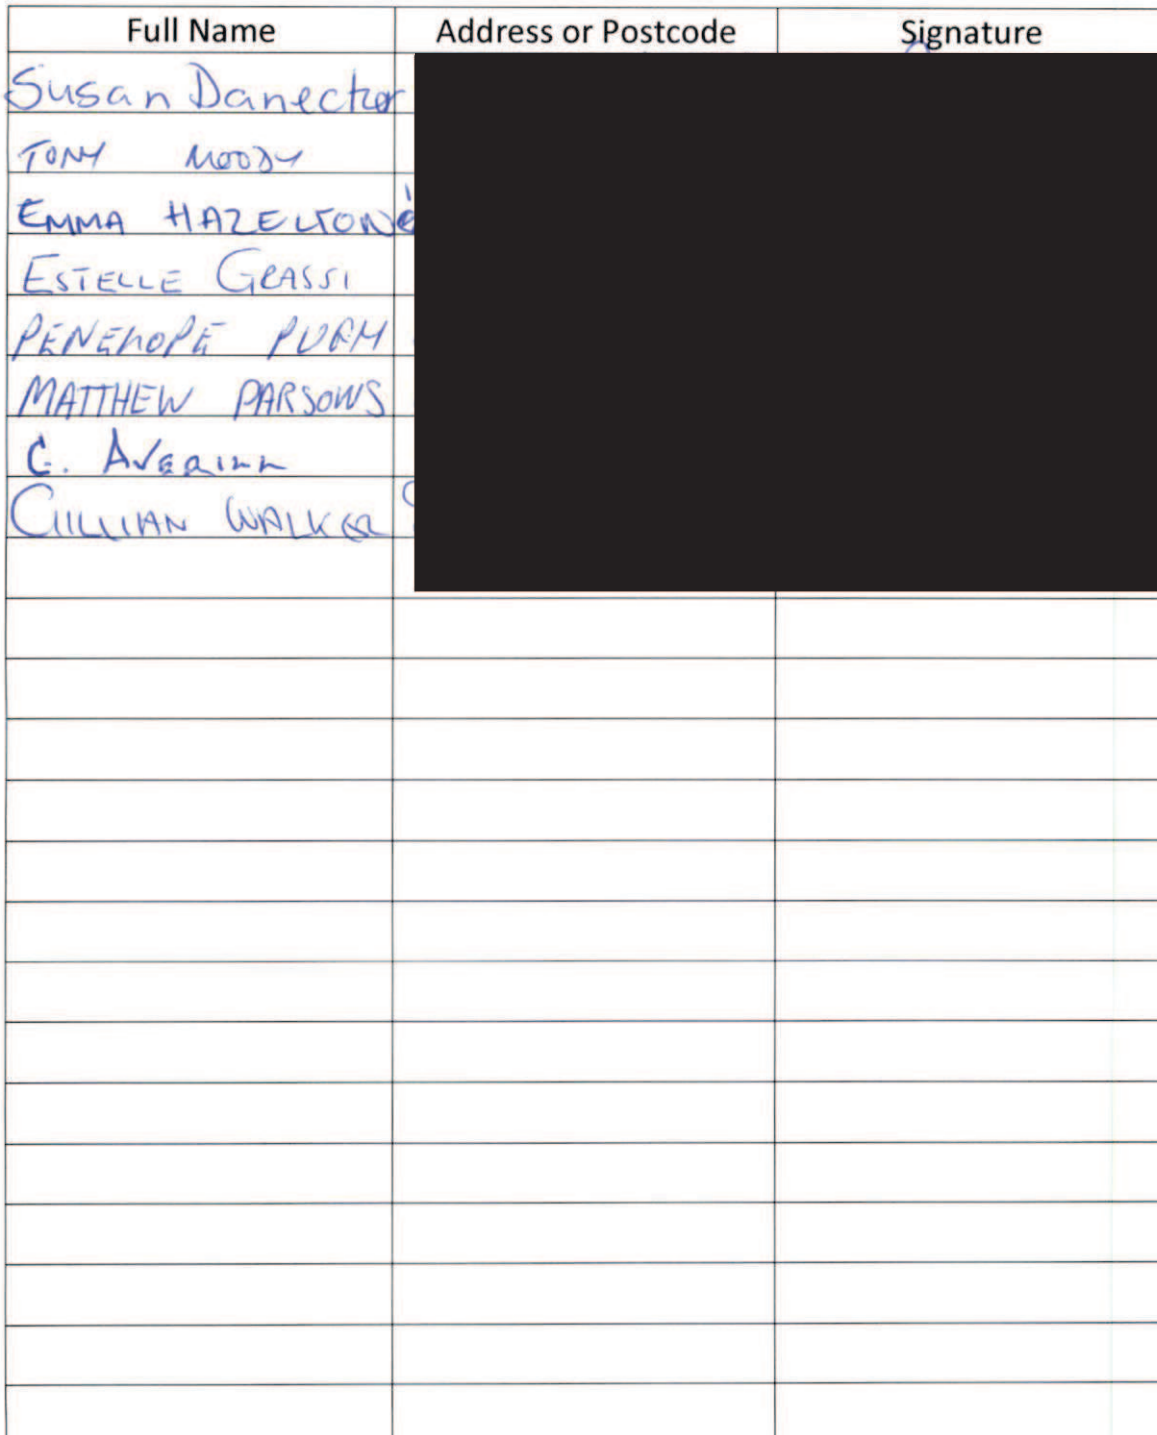 Full Name Address or Postcode Signature
Susan Danecker
TONY MOODY
EMMA HAZELTON
ESTELLE GRASSI
PENELOPE
MATTHEW PARSONS
C. Averill
GILLIAN WALKER